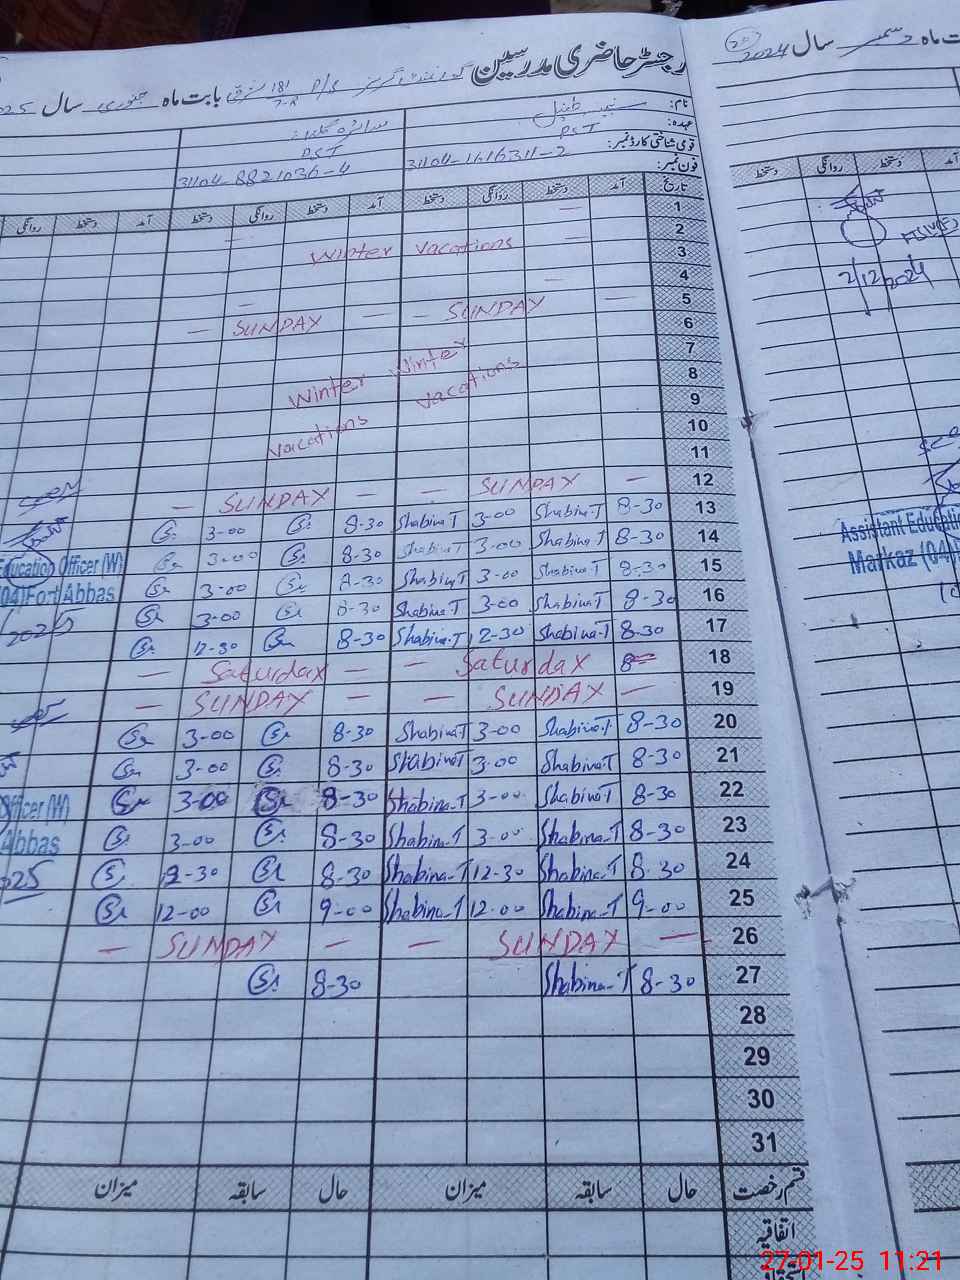 رجسٹر حاضری مدرسین گورنمنٹ گرلز P/S 181 7-R بابت ماہ جنوری سال 2025
نام: شبینہ طفیل سائرہ
عہدہ: PST PST
قومی شناختی کارڈ نمبر: 31104-1616311-2 31104-8821036-4
فون نمبر:
تاریخ آمد دستخط روانگی دستخط آمد دستخط روانگی دستخط آمد دستخط روانگی
1
2
3 Winter vacations
4
5 — SUNDAY — — SUNDAY —
6
7 Winter Winter
8
9 vacations vacations
10
11
12 — SUNDAY — — SUNDAY —
13 8-30 Shabina-T 3-00 Shabina-T 8-30 Sr 3-00 Sr
14 8-30 Shabina-T 3-00 Shabina-T 8-30 Sr 3-00 Sr
15 8-30 Shabina-T 3-00 Shabina-T 8-30 Sr 3-00 Sr
16 8-30 Shabina-T 3-00 Shabina-T 8-30 Sr 3-00 Sr
17 8-30 Shabina-T 12-30 Shabina-T 8-30 Sr 12-30 Sr
18 8 Saturday — — Saturday —
19 — SUNDAY — — SUNDAY —
20 8-30 Shabina-T 3-00 Shabina-T 8-30 Sr 3-00 Sr
21 8-30 Shabina-T 3-00 Shabina-T 8-30 Sr 3-00 Sr
22 8-30 Shabina-T 3-00 Shabina-T 8-30 Sr 3-00 Sr
23 8-30 Shabina-T 3-00 Shabina-T 8-30 Sr 3-00 Sr
24 8-30 Shabina-T 12-30 Shabina-T 8-30 Sr 2-30 Sr
25 9-00 Shabina-T 12-00 Shabina-T 9-00 Sr 12-00 Sr
26 — SUNDAY — — SUNDAY —
27 8-30 Shabina-T 8-30 Sr
28
29
30
31
قسم رخصت حال سابقہ میزان حال سابقہ میزان
اتفاقیہ
seen
Education Officer (W)
(04) Fort Abbas
2025
seen
Officer (W)
Abbas
025
بابت ماہ دسمبر سال 2024
آمد دستخط روانگی دستخط
2/12/2024
Assistant Education
Markaz (04)
27-01-25 11:21